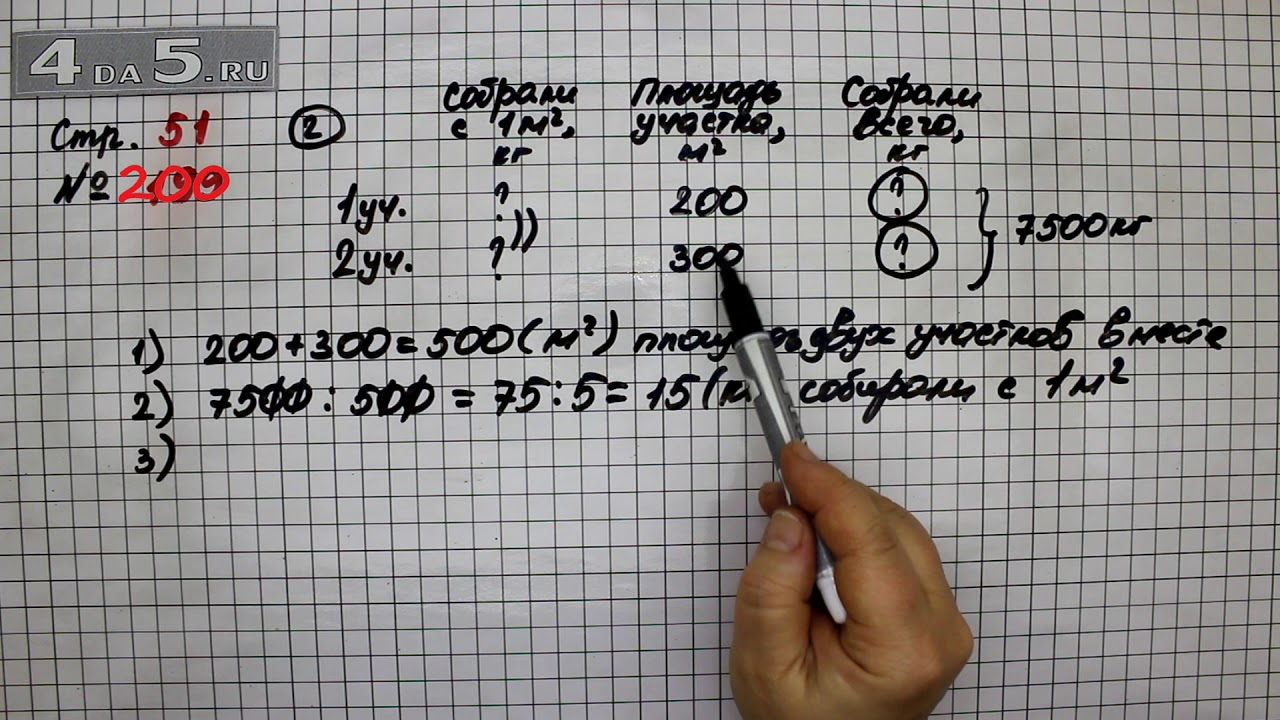 4DA5.RU
Стр. 51
№ 200
2
собрали с 1м², кг
Площадь участка, м²
Собрали всего, кг
1уч. ? 200 ?
2уч. ? 300 ?
} 7500кг
1) 200+300=500(м²) двух участков вместе
2) 7500:500=75:5=15( собирали с 1м²
3)